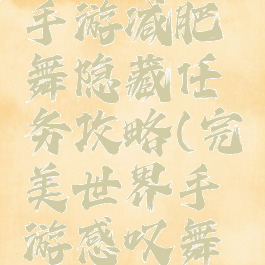 手游减肥
舞隐藏任
务攻略(完
美世界手
游感叹舞